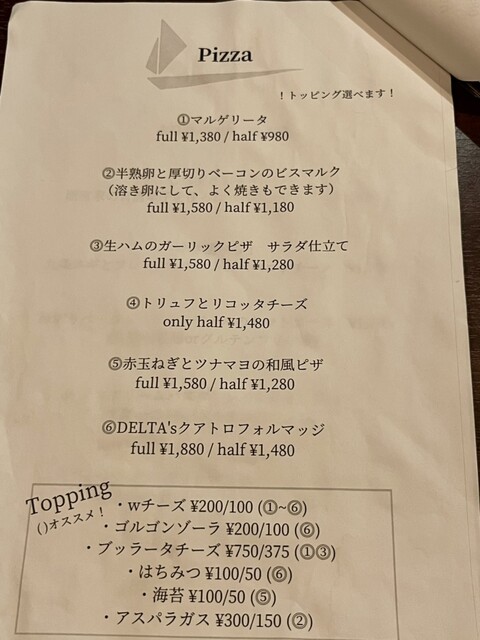 Pizza
！トッピング選べます！
①マルゲリータ
full ¥1,380 / half ¥980
②半熟卵と厚切りベーコンのビスマルク
（溶き卵にして、よく焼きもできます）
full ¥1,580 / half ¥1,180
③生ハムのガーリックピザ　サラダ仕立て
full ¥1,580 / half ¥1,280
④トリュフとリコッタチーズ
only half ¥1,480
⑤赤玉ねぎとツナマヨの和風ピザ
full ¥1,580 / half ¥1,280
⑥DELTA'sクアトロフォルマッジ
full ¥1,880 / half ¥1,480
Topping
()オススメ！
・wチーズ ¥200/100 (①~⑥)
・ゴルゴンゾーラ ¥200/100 (⑥)
・ブッラータチーズ ¥750/375 (①③)
・はちみつ ¥100/50 (⑥)
・海苔 ¥100/50 (⑤)
・アスパラガス ¥300/150 (②)